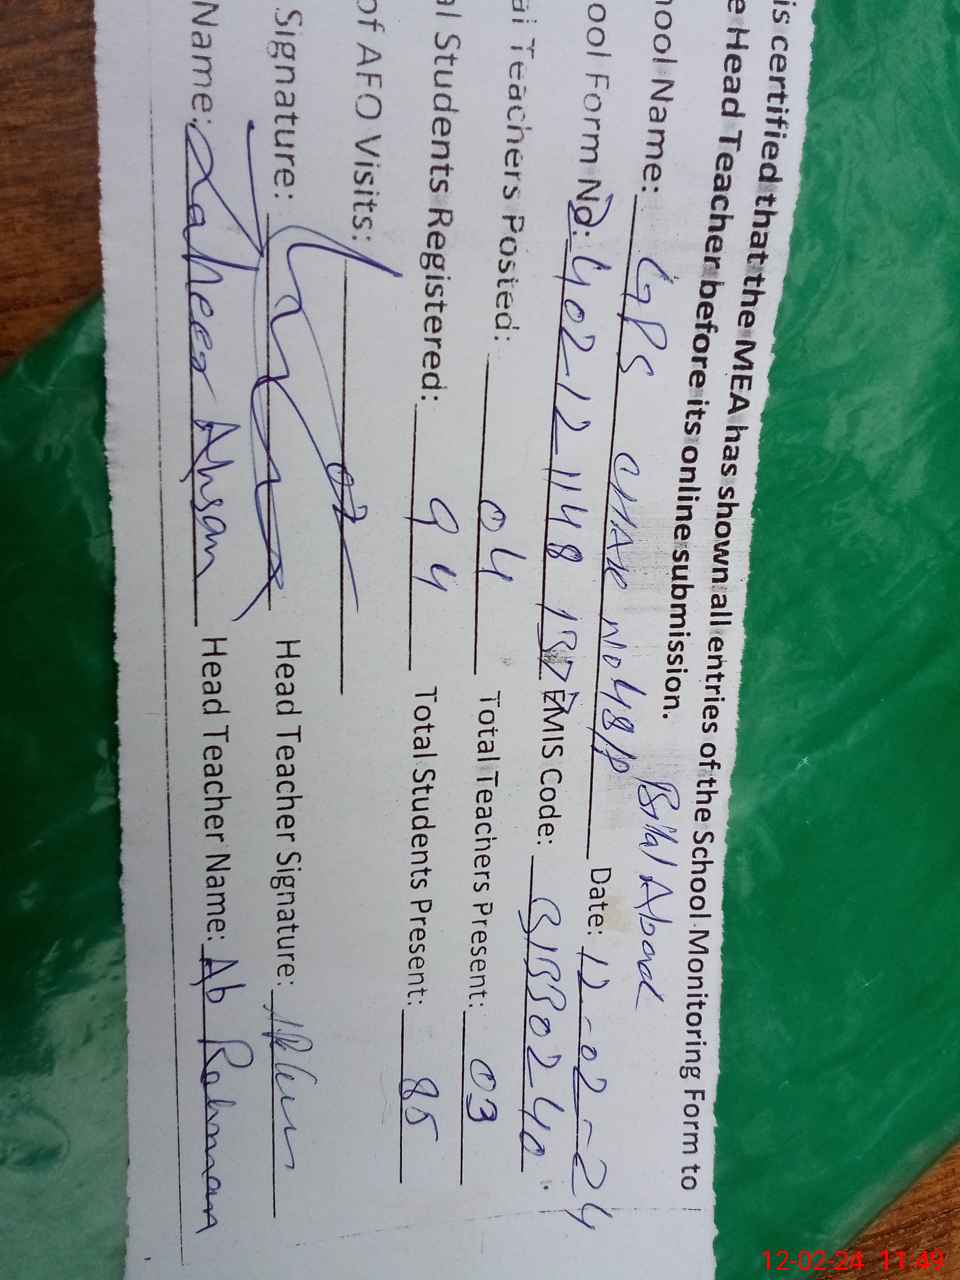 is certified that the MEA has shown all entries of the School Monitoring Form to
e Head Teacher before its online submission.
hool Name: GPS CHAK No 48/P Bilal Abad
ool Form No: 402-12 1148 137 EMIS Code: 31330240 Date: 12-02-24
al Teachers Posted: 04 Total Teachers Present: 03
al Students Registered: 94 Total Students Present: 85
of AFO Visits: 02
Signature: Head Teacher Signature:
Name: Zaheer Ahsan Head Teacher Name: Ab Rahman
12-02-24 11:49